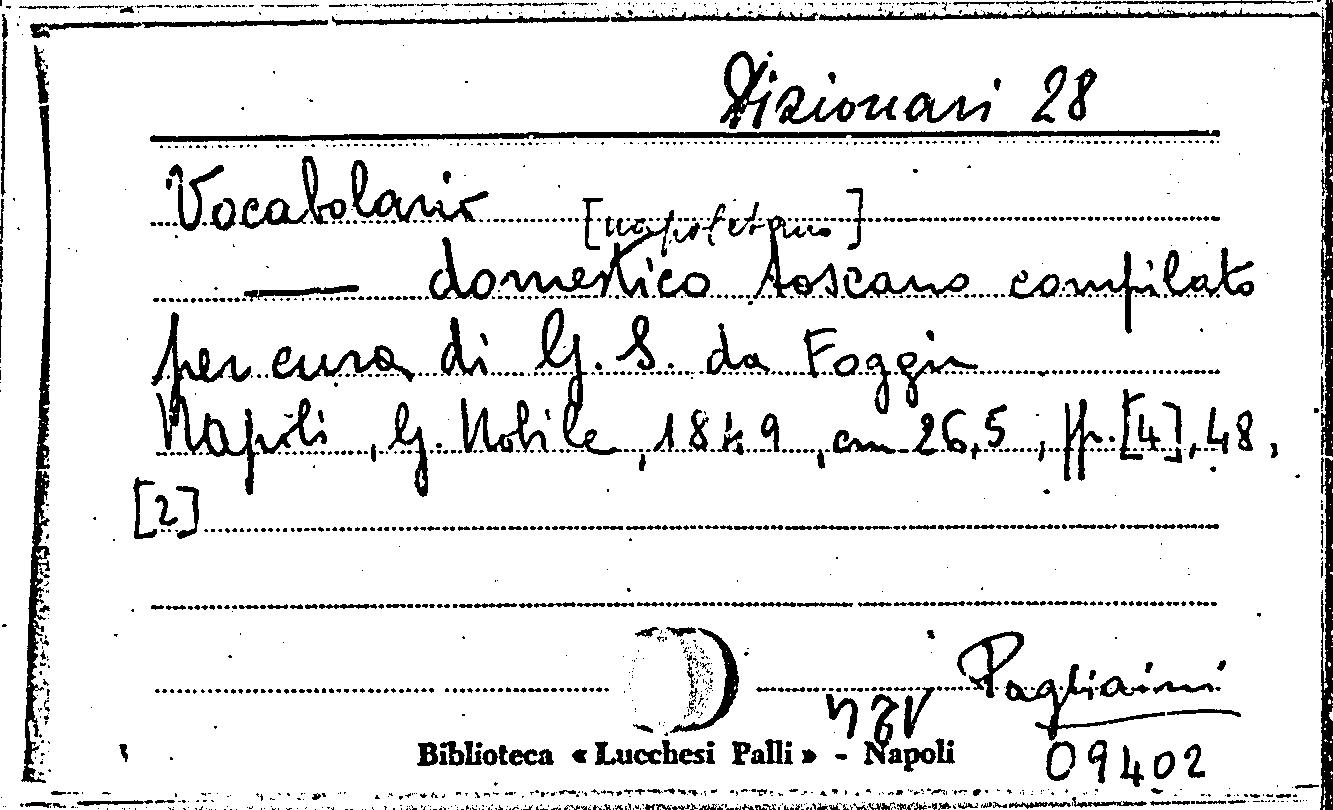 Dizionari 28
Vocabolario
[napoletano]
— domestico toscano compilato
per cura di G. S. da Foggia
Napoli, G. Nobile, 1849, cm 26,5, pp. [4], 48,
[2]
Pagliaini
Biblioteca « Lucchesi Palli » - Napoli
09402